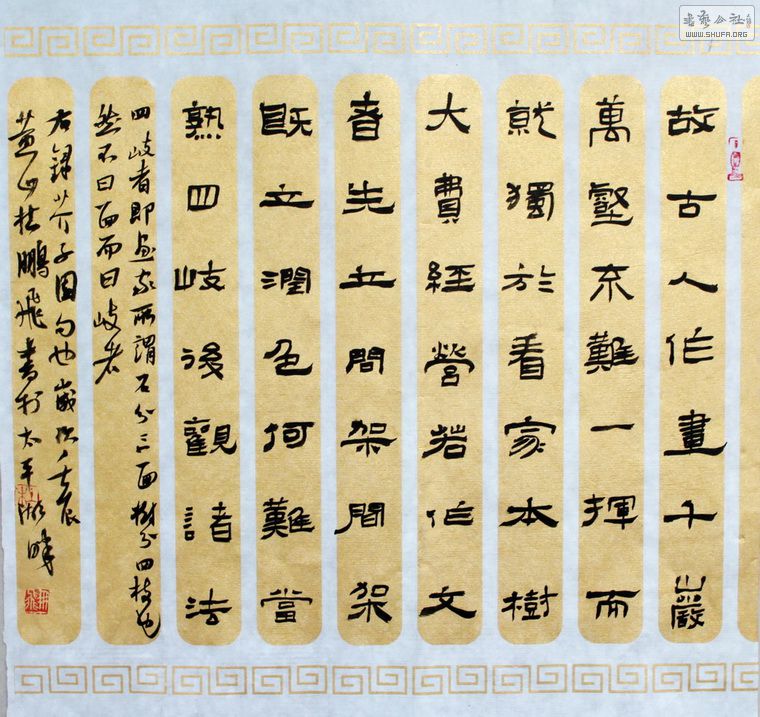 故古人作畫千巖
萬壑不難一揮而
就獨於看家本樹
大費經營若作文
者先立間架間架
既立潤色何難當
熟四岐後觀諸法
四岐者即畫家所謂石分三面樹分四枝也
然不曰面而曰岐者
右錄芥子園句也歲次壬辰
黃山杜鵬飛書於太平湖畔
書藝公社
WWW.SHUFA.ORG